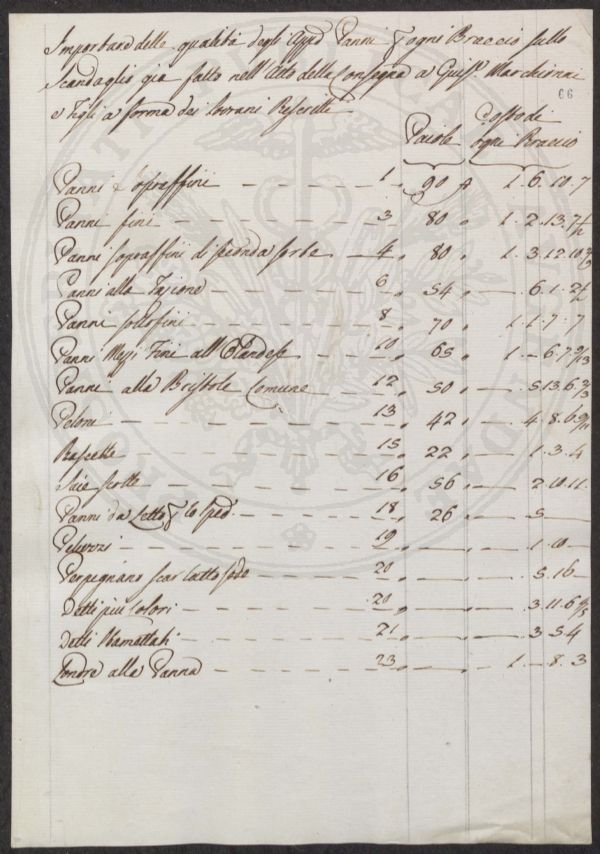 Importare delle qualità degli Appd Panni ogni Braccio sullo
Scandaglio già fatto nell'Atto della Consegna a Guise Marchionni
e Figli a forma dei Sovrani Rescritti
66
Paiole Costo di ogni Braccio
Panni Sopraffini 1 90 1. 6. 10. 7
Panni fini 3 80 1. 2. 13. 7 1/2
Panni sopraffini di seconda sorte 4 80 1. 3. 12. 10 2/3
Panni alla 6 54 6. 1. 2 1/2
Panni sottofini 8 70 1. 1. 7. 7
Panni Mezzi Fini all'Olandese 10 65 1. – 6. 7
Panni alla Bristole Comune 12 50 5. 13. 6 2/3
Peloni 13 42 4. 8. 6
Rascette 15 22 1. 3. 4
Saie scotte 16 56 2. 10. 11
Panni da Letto lo Sped 18 26 5
Peluzzi 19 1. 10
Perpignano scarlatto sode 20 5. 16
Detti più colori 20 3. 11. 6
Detti 21 3 5 4
Londre alla Panna 23 1. – 8. 3